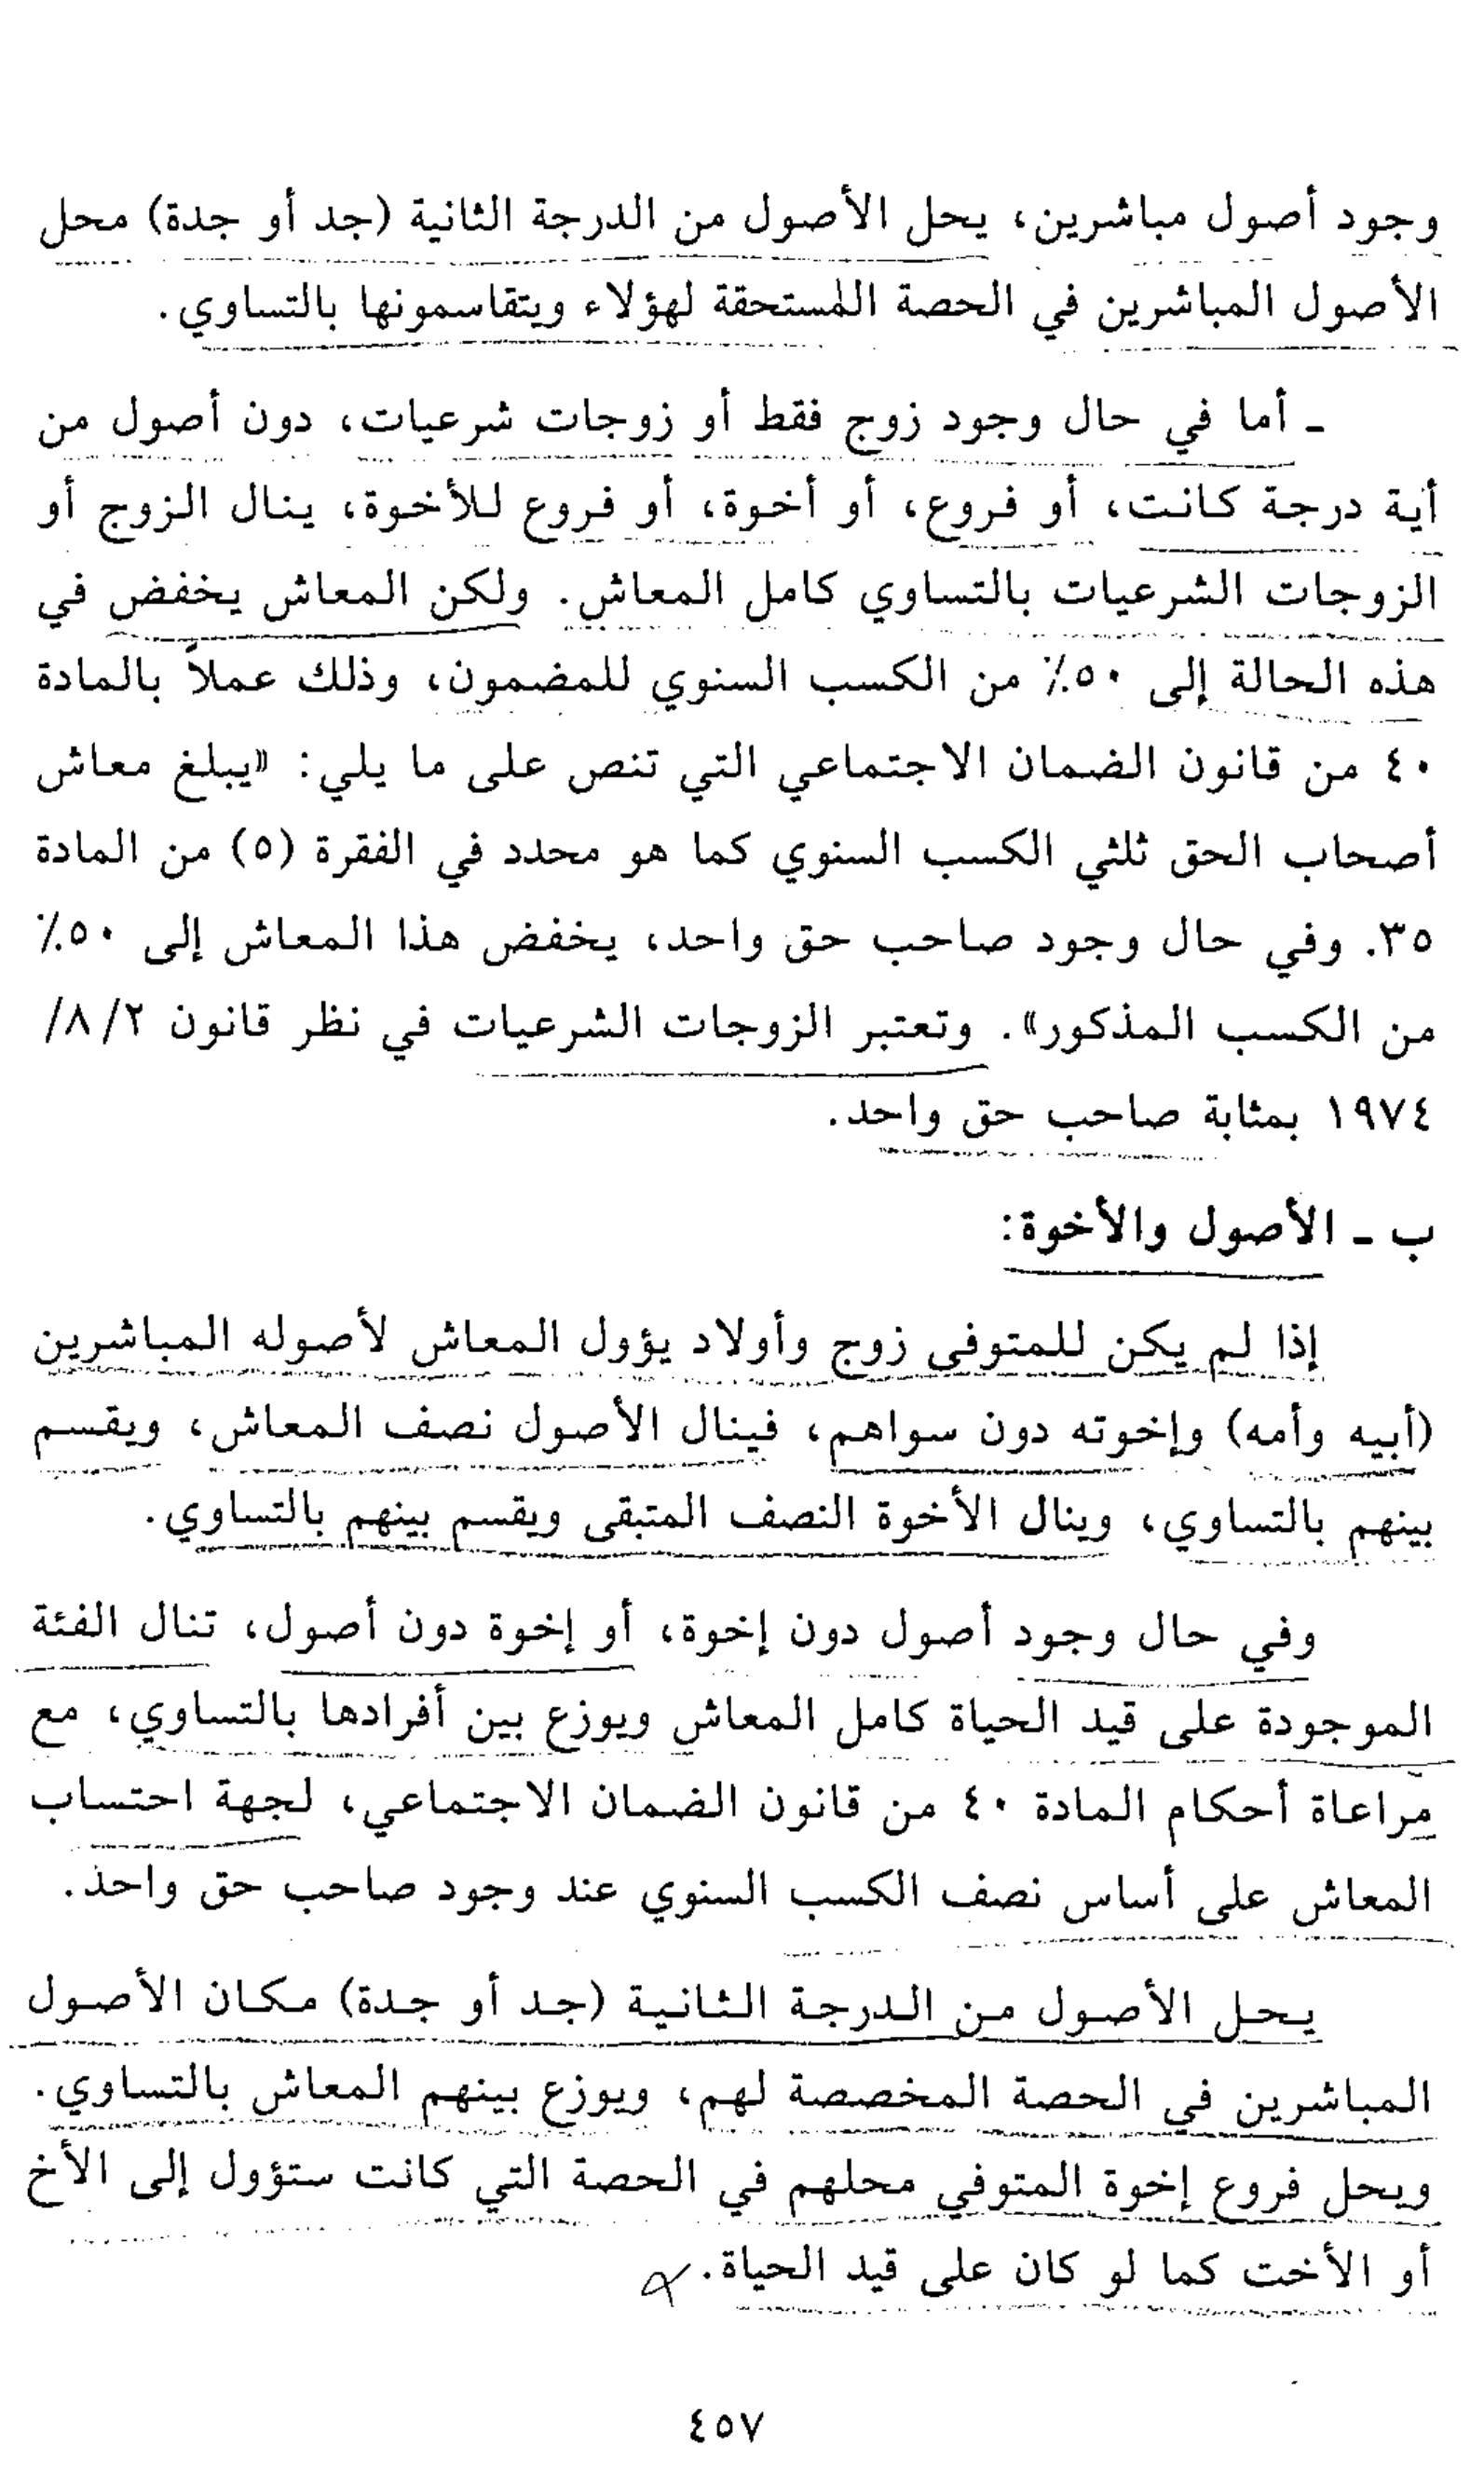 وجود أصول مباشرين، يحل الأصول من الدرجة الثانية (جد أو جدة) محل
الأصول المباشرين في الحصة المستحقة لهؤلاء ويتقاسمونها بالتساوي.
ـ أما في حال وجود زوج فقط أو زوجات شرعيات، دون أصول من
أية درجة كانت، أو فروع، أو أخوة، أو فروع للأخوة، ينال الزوج أو
الزوجات الشرعيات بالتساوي كامل المعاش. ولكن المعاش يخفض في
هذه الحالة إلى ٥٠٪ من الكسب السنوي للمضمون، وذلك عملاً بالمادة
٤٠ من قانون الضمان الاجتماعي التي تنص على ما يلي: «يبلغ معاش
أصحاب الحق ثلثي الكسب السنوي كما هو محدد في الفقرة (٥) من المادة
٣٥. وفي حال وجود صاحب حق واحد، يخفض هذا المعاش إلى ٥٠٪
من الكسب المذكور». وتعتبر الزوجات الشرعيات في نظر قانون ٨/٢/
١٩٧٤ بمثابة صاحب حق واحد.
ب ـ الأصول والأخوة:
إذا لم يكن للمتوفى زوج وأولاد يؤول المعاش لأصوله المباشرين
(أبيه وأمه) وإخوته دون سواهم، فينال الأصول نصف المعاش، ويقسم
بينهم بالتساوي، وينال الأخوة النصف المتبقى ويقسم بينهم بالتساوي.
وفي حال وجود أصول دون إخوة، أو إخوة دون أصول، تنال الفئة
الموجودة على قيد الحياة كامل المعاش ويوزع بين أفرادها بالتساوي، مع
مراعاة أحكام المادة ٤٠ من قانون الضمان الاجتماعي، لجهة احتساب
المعاش على أساس نصف الكسب السنوي عند وجود صاحب حق واحد.
يحل الأصول من الدرجة الثانية (جد أو جدة) مكان الأصول
المباشرين في الحصة المخصصة لهم، ويوزع بينهم المعاش بالتساوي.
ويحل فروع إخوة المتوفي محلهم في الحصة التي كانت ستؤول إلى الأخ
أو الأخت كما لو كان على قيد الحياة.
٤٥٧